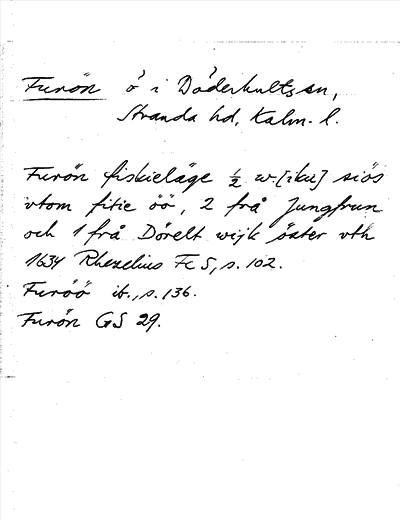 Furön ö i Döderhults sn,
Stranda hd, Kalm. l.
Furön fiskieläge ½ w.[iku] siös
vtom fitie öö, 2 frå Jungfrun
och 1 frå Dörelt wijk öster vth
1634 Rhezelius FcS, s. 102.
Furöö ib., s. 136.
Furön GS 29.